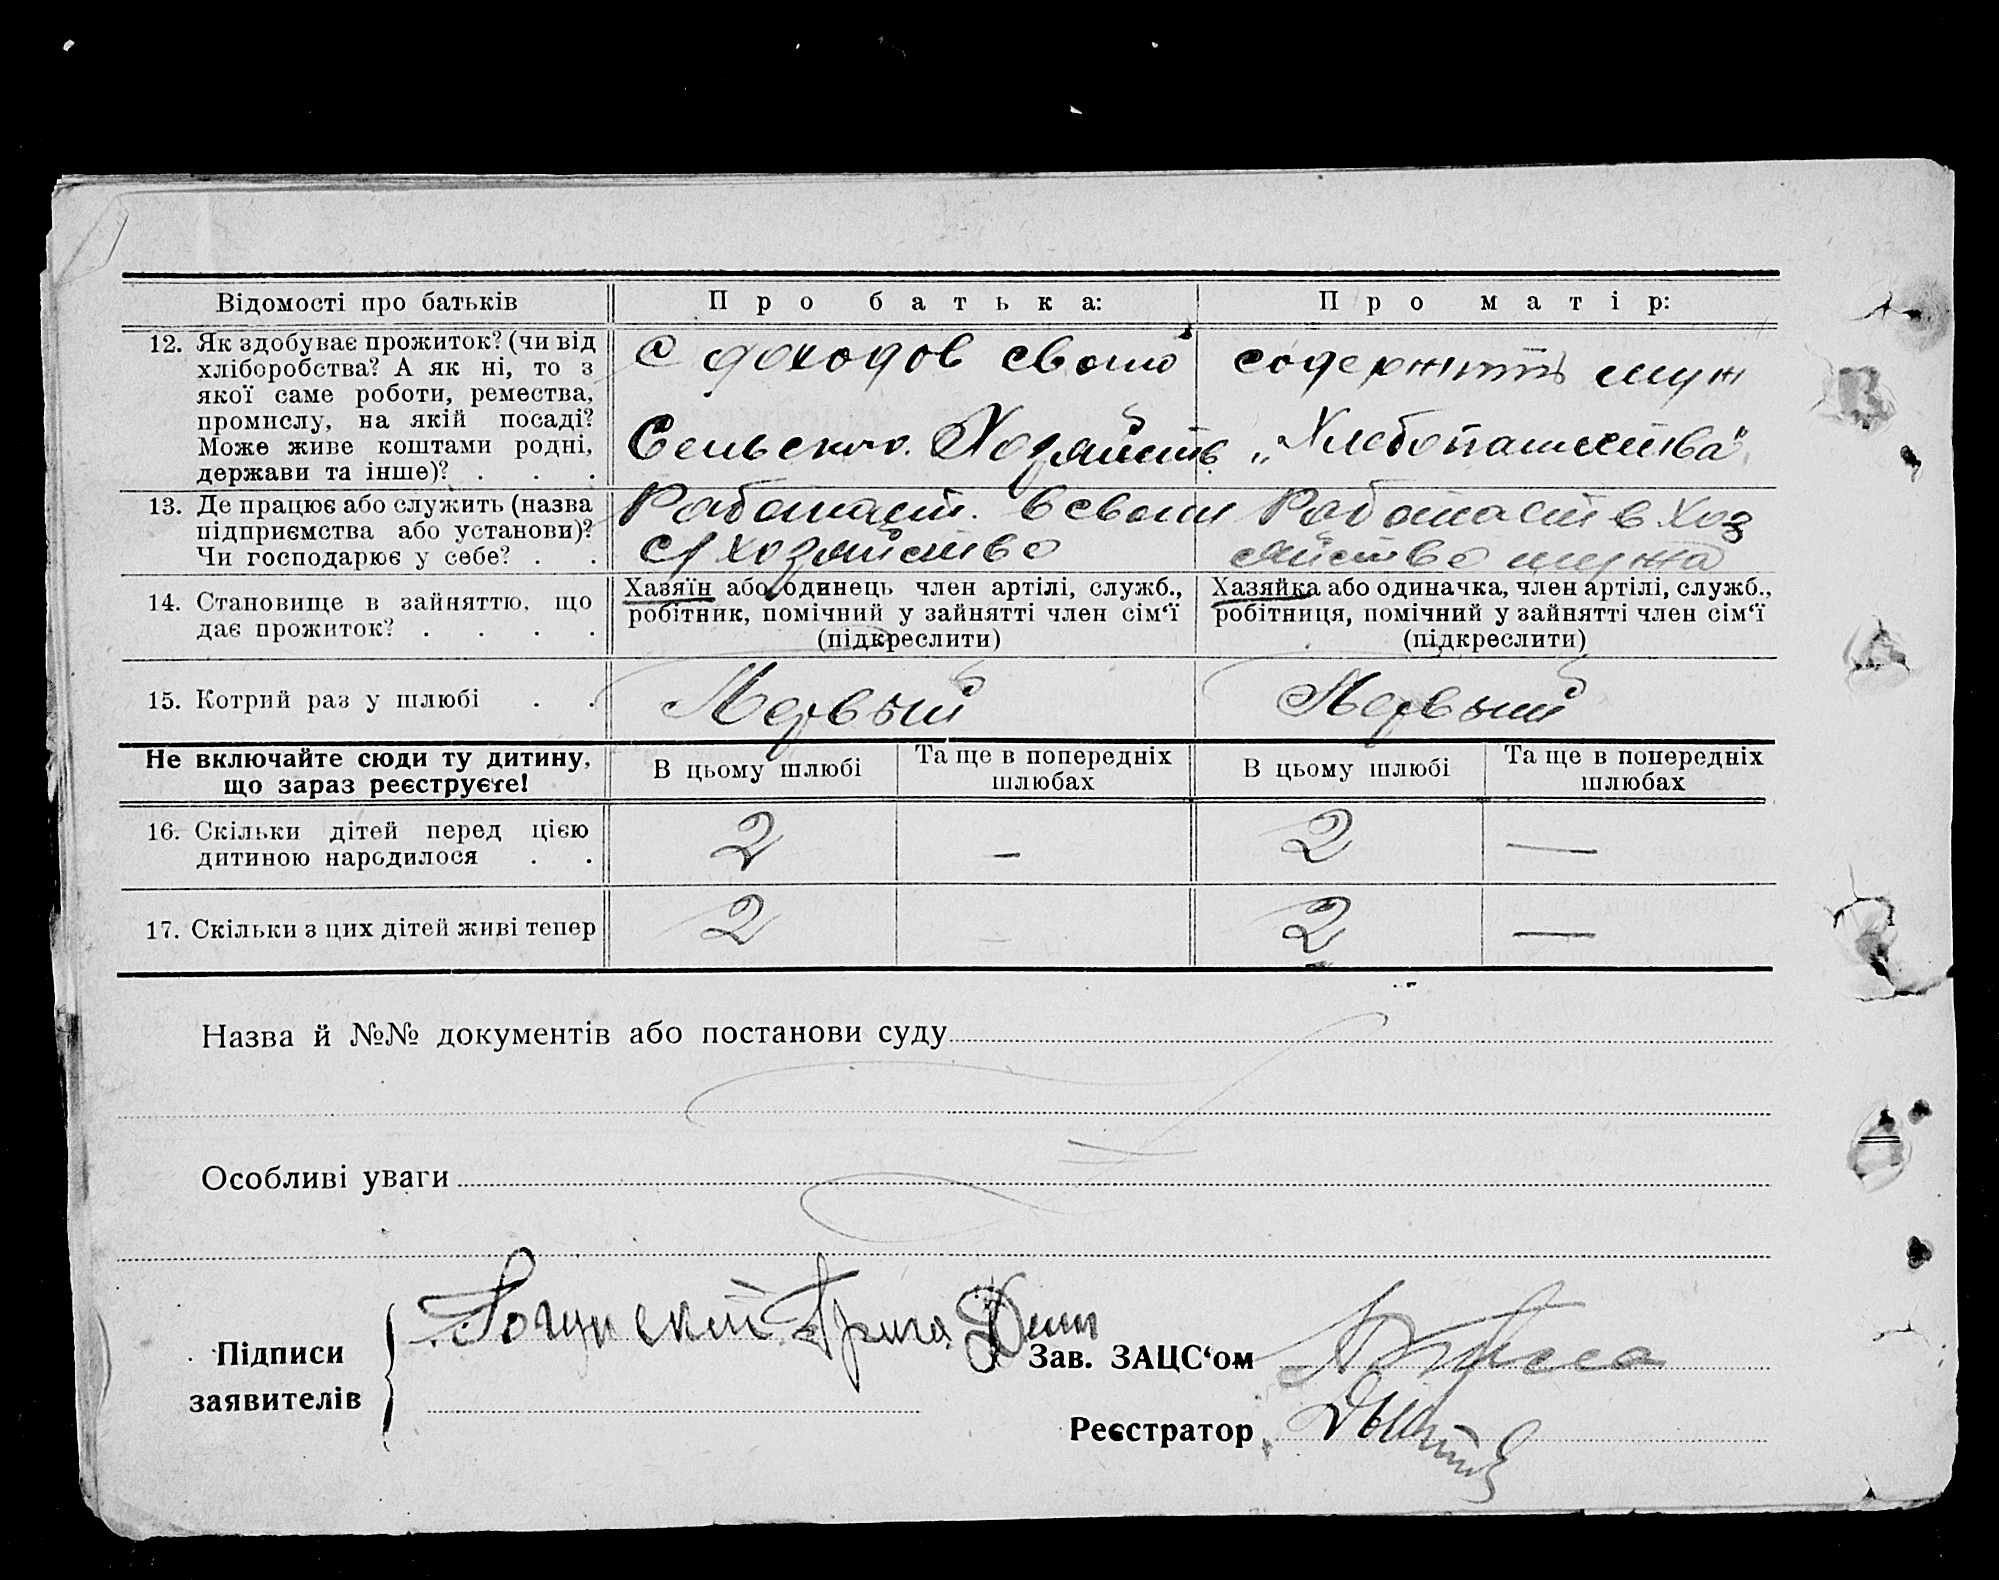 Відомості про батьків
Про батька:
Про матір:
12. Як здобуває прожиток? (чи від
хліборобства? А як ні, то з
якої саме роботи, ремества,
промислу, на якій посаді?
Може живе коштами родні,
держави та інше)? . . .
с доходов своий
Сельского. Хозяйств
содержить муж
„Хлебопашества"
13. Де працює або служить (назва
підприємства або установи)?
Чи господарює у себе? . .
Работает. в своем
с/хозяйстве
Работает в хоз
яйстве мужа
14. Становище в зайняттю, що
дає прожиток? . . . .
Хазяїн або одинець член артілі, служб.,
робітник, помічний у зайнятті член сім‘ї
(підкреслити)
Хазяйка або одиначка, член артілі, служб.,
робітниця, помічний у зайнятті член сім‘ї
(підкреслити)
15. Котрий раз у шлюбі . .
Первый
Первый
Не включайте сюди ту дитину,
що зараз реєструєте!
В цьому шлюбі
Та ще в попередніх
шлюбах
В цьому шлюбі
Та ще в попередніх
шлюбах
16. Скільки дітей перед цією
дитиною народилося . .
2
—
2
—
17. Скільки з цих дітей живі тепер
2
—
2
—
Назва й №№ документів або постанови суду
Особливі уваги
Підписи
заявителів
Зав. ЗАЦС‘ом
Реєстратор